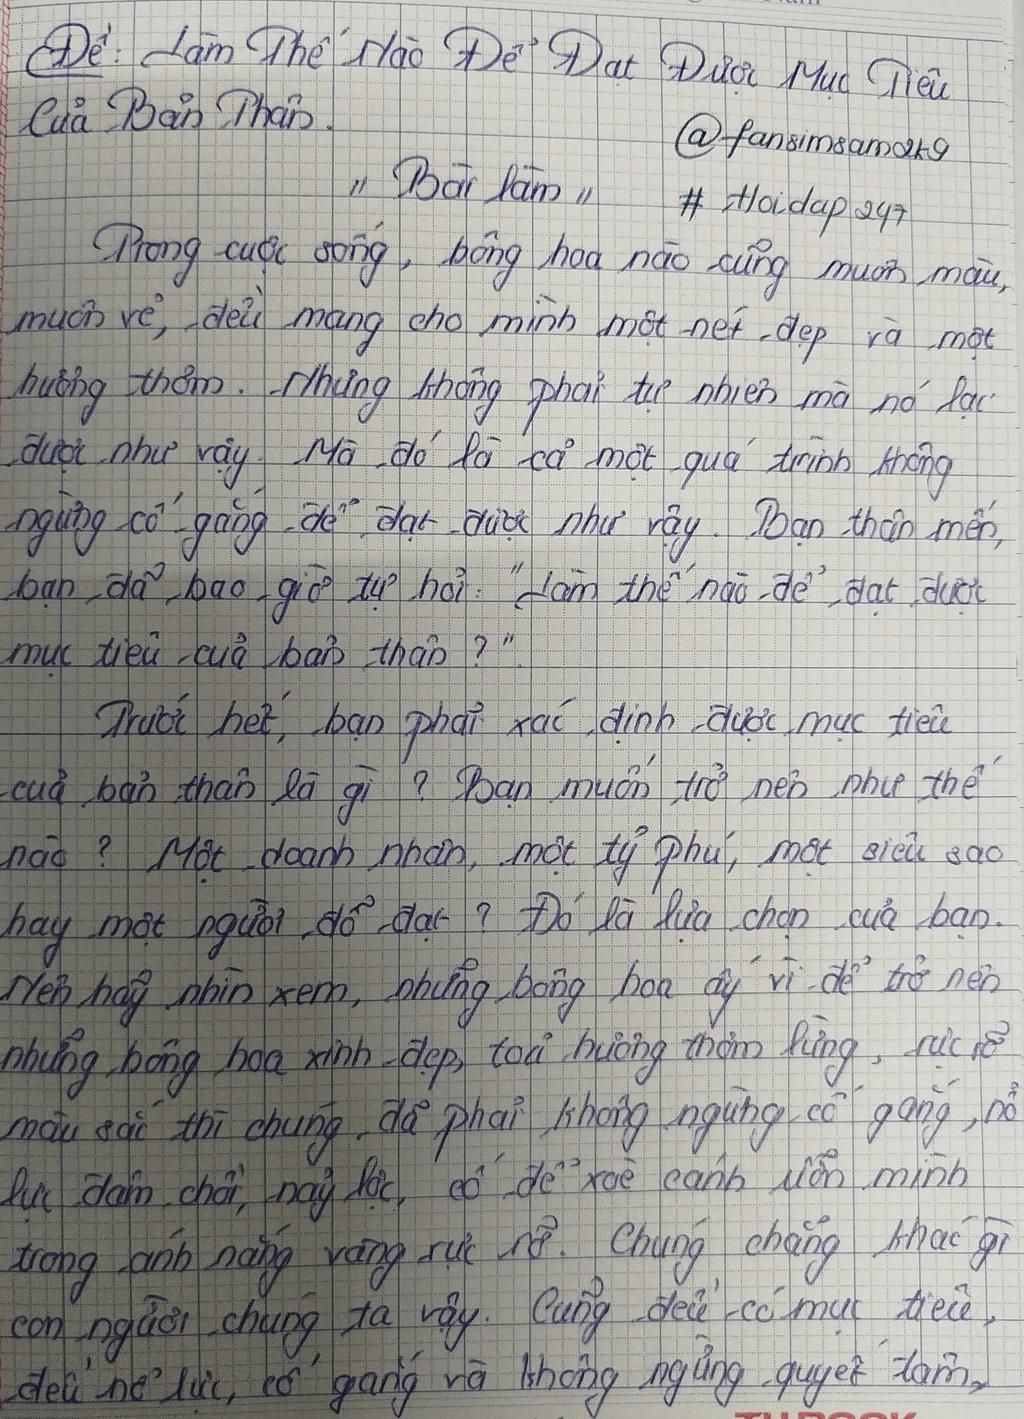 Đề: Làm Thế Nào Để Đạt Được Mục Tiêu
Của Bản Thân.
@fansimsam2k9
" Bài làm "
# Hoidap247
Trong cuộc sống, bông hoa nào cũng muôn màu,
muôn vẻ, đều mang cho mình một nét đẹp và một
hương thơm. Nhưng không phải tự nhiên mà nó lại
được như vậy. Mà đó là cả một quá trình không
ngừng cố gắng để đạt được như vậy. Bạn thân mến,
bạn đã bao giờ tự hỏi: "Làm thế nào để đạt được
mục tiêu của bản thân ?".
Trước hết, bạn phải xác định được mục tiêu
của bản thân là gì ? Bạn muốn trở nên như thế
nào ? Một doanh nhân, một tỷ phú, một siêu sao
hay một người đỗ đạt ? Đó là lựa chọn của bạn.
Nên hãy nhìn xem, những bông hoa ấy vì để trở nên
những bông hoa xinh đẹp, toả hương thơm lừng, rực rỡ
màu sắc thì chúng đã phải không ngừng cố gắng, nỗ
lực đâm chồi, nảy lộc, cố để xoè cánh uốn mình
trong ánh nắng vàng rực rỡ. Chúng chẳng khác gì
con người chúng ta vậy. Cũng đều có mục tiêu,
đều nỗ lực, cố gắng và không ngừng quyết tâm,